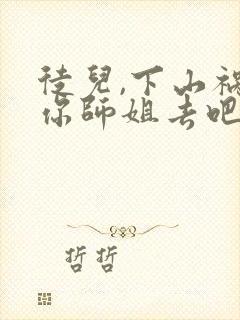 徒兒,下山禍
你師姐去吧
哲哲